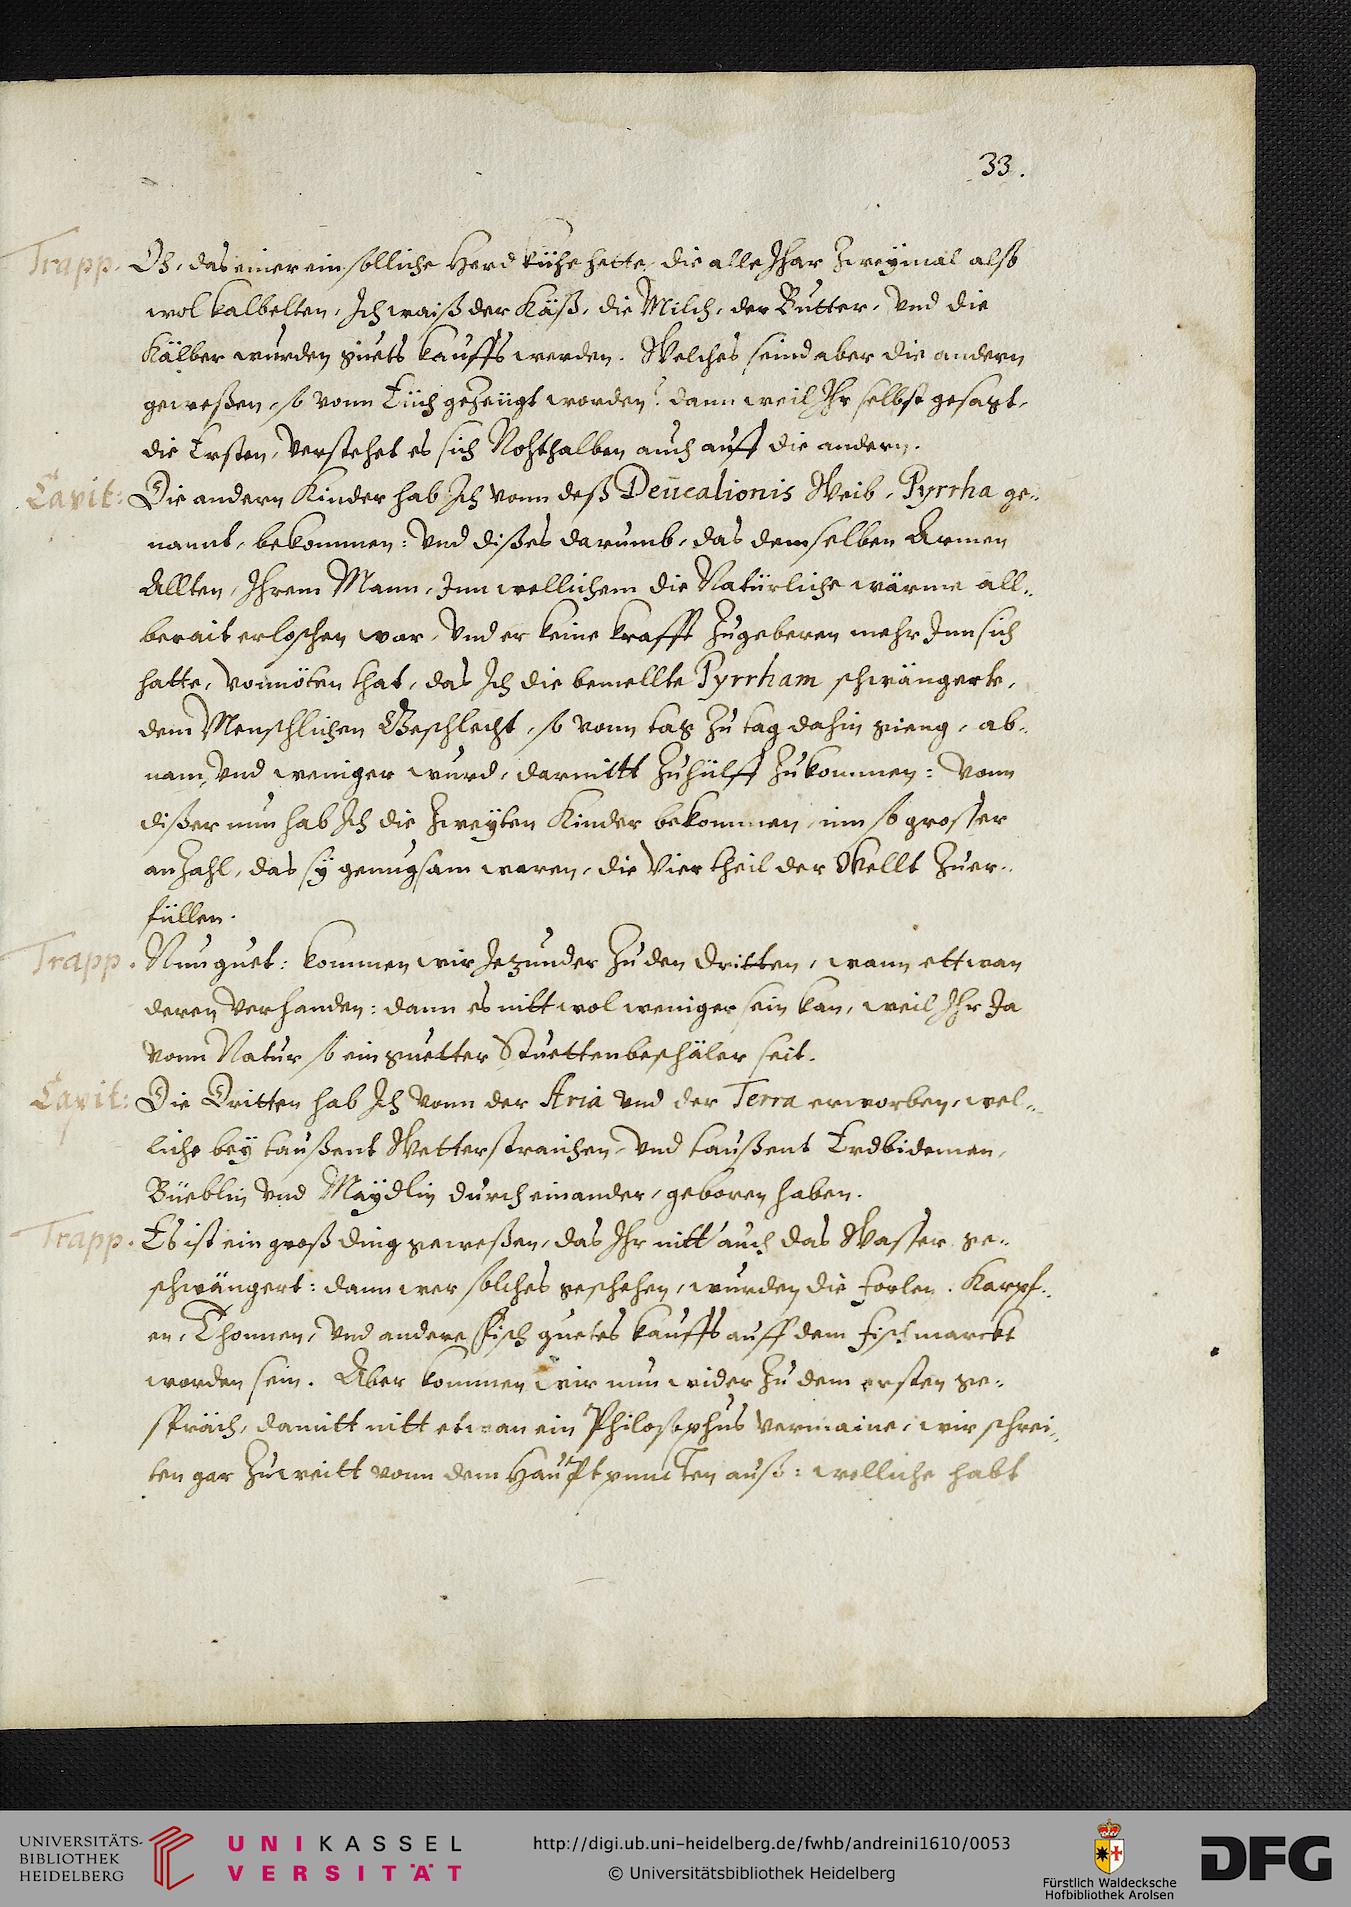 33.
Trapp. Oh, das einer ein solliche Herd kühe hette, die alle Jhar Zweÿmal also
wol kalbelten, Jch waiß der Käß, die Milch, der Butter, Vnd die
Kälber wurden guets kauffs werden. Welches seind aber die andern
geweßen, so vonn Eüch gezeügt worden? dann weil Jhr selbst gesagt,
die Ersten, Verstehet es sich Nohthalben auch auff die andern.
Cavit: Die andern Kinder hab Jch vonn deß Deücalionis Weib, Pyrrha ge-
nannt, bekommen: Vnd dißes darumb, das demselben Armen
Allten, Jhrem Mann, Jnn wellichem die Natürliche wärme all-
berait erloschen war, Vnd er keine krafft Zugeberen mehr Jnn sich
hatte, vonnöten that, das Jch die bemellte Pyrrham schwängerte,
dem Menschlichen Geschlecht, so vonn tag Zu tag dahin gieng, ab-
nam, Vnd weniger wurd, darmitt Zuhülff Zukommen: Vonn
dißer nun hab Jch die Zweÿten Kinder bekommen, inn so grosser
anzahl, das sÿ genugsam waren, die Vier theil der Wellt Zuer-
füllen.
Trapp. Nun guet: kommen wir Jezunder Zu den dritten, wann ettwan
deren Verhanden: dann es nitt wol weniger sein kan, weil Jhr Ja
vonn Natur so ein guetter Stuettenbeschäler seit.
Cavit: Die Dritten hab Jch Vonn der Aria Vnd der Terra erworben, wel-
liche beÿ taußent Wetterstraichen, Vnd taußent Erdbidemen,
Büeblin Vnd Maÿdlin durcheinander, geboren haben.
Trapp. Es ist ein groß ding geweßen, das Jhr nitt auch das Wasser ge-
schwängert: dann wer solches geschehen, wurden die forlen, Karpf-
en, Thonnen, Vnd andere fisch guetes kauffs auff dem fischmarckt
worden sein. Aber kommen wir nun wider Zu dem ersten ge-
spräch, damitt nitt etwan ein Philosophus vermaine, wir schrei-
ten gar Zuweitt vonn dem Hauptpuncten auß: welliche habt
UNIVERSITÄTS-
BIBLIOTHEK
HEIDELBERG
UNIKASSEL
VERSITÄT
http://digi.ub.uni-heidelberg.de/fwhb/andreini1610/0053
© Universitätsbibliothek Heidelberg
Fürstlich Waldecksche
Hofbibliothek Arolsen
DFG